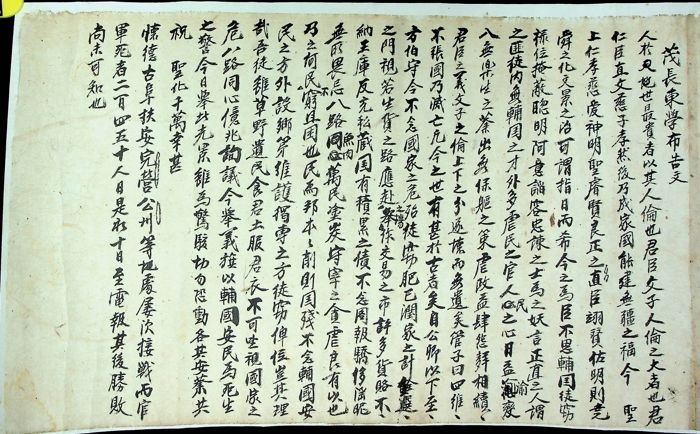 茂長東學布告文
人於天地世最貴者以其人倫也君臣父子人倫之大者也君
仁臣直父慈子孝然後乃成家國能建無疆之福今 聖
上仁孝慈愛神明聖睿賢良正之直臣翊贊佐明則堯
舜之化文景之治可謂指日而希今之爲臣不思輔国徒窃
祿位掩蔽聡明阿意諂容忠諫之士爲之妖言正直之人謂
之匪徒內無輔国之才外多虐民之官人民之心日益渝變
入無樂生之業出無保軀之策虐政益肆怨聲相續〻
君臣之義父子之倫上下之分遂壞而無遺矣管子曰四維〻
不張國乃滅亡凡今之世有甚於古者矣自公卿以下至〻
方伯守令不念國家之危殆徒切肥己潤家之計銓選〻
之門視若生貨之路應赴之場擧作交易之市許多貨賂不〻
納王庫反充私藏国有積累之債不念周報驕侈淫昵
無所畏忌八路魚肉萬民塗炭守宰之貪虐良有以也
乃之何民不窮且困也民爲邦本〻削則国殘不念輔國安
民之方外設鄕第維護獨專之方徒窃俸位豈其理
哉吾徒雖草野遺民食君土服君衣不可坐視國家之
危八路同心億兆詢議今擧義旗以輔國安民爲死生
之誓今日擧此光景雖爲驚駭切勿恐動各其安業共
祝 聖化千萬幸甚
懷德古阜扶安完營公州等地處屢次接戰而官
軍死者二百四五十人日是如十日至電報其後勝敗
尚未可知也